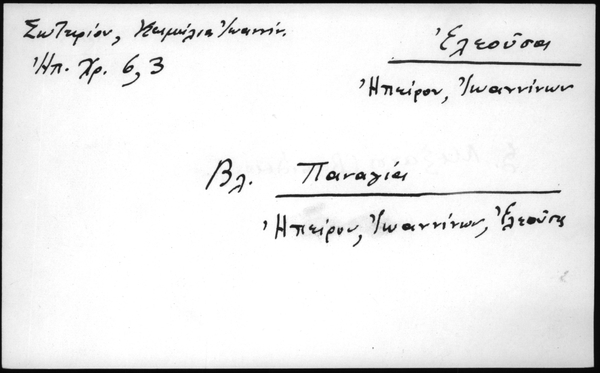 Σωτηρίου, Κειμήλια Ἰωαννίν.
Ἠπ. Χρ. 6, 3
Ἐλεοῦσα
Ἠπείρου, Ἰωαννίνων
Βλ. Παναγία
Ἠπείρου, Ἰωαννίνων, Ἐλεοῦσα